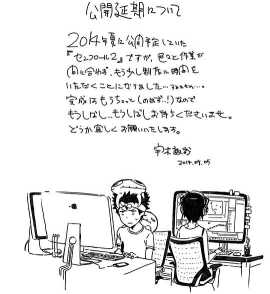 公開延期について
2014年夏に公開予定していた
『センコロール2』ですが、色々と作業が
間に合わず、もう少し制作に時間を
いただくことになりました…すみません…
完成はもうちょっと(のはず…!)なので
もうしばし…もうしばしお待ちくださいませ。
どうか宜しくお願いいたします。
宇木敦哉
2014.09.05